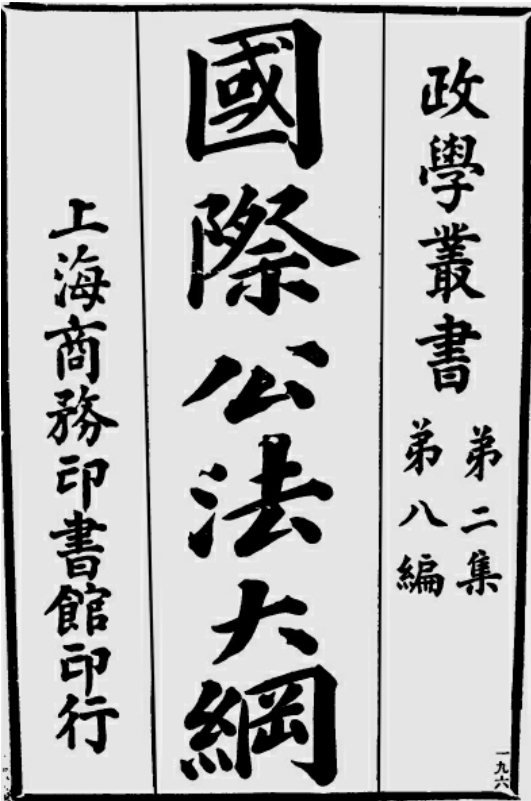 政學叢書
第二集
第八編
國際公法大綱
上海商務印書館印行
一九六